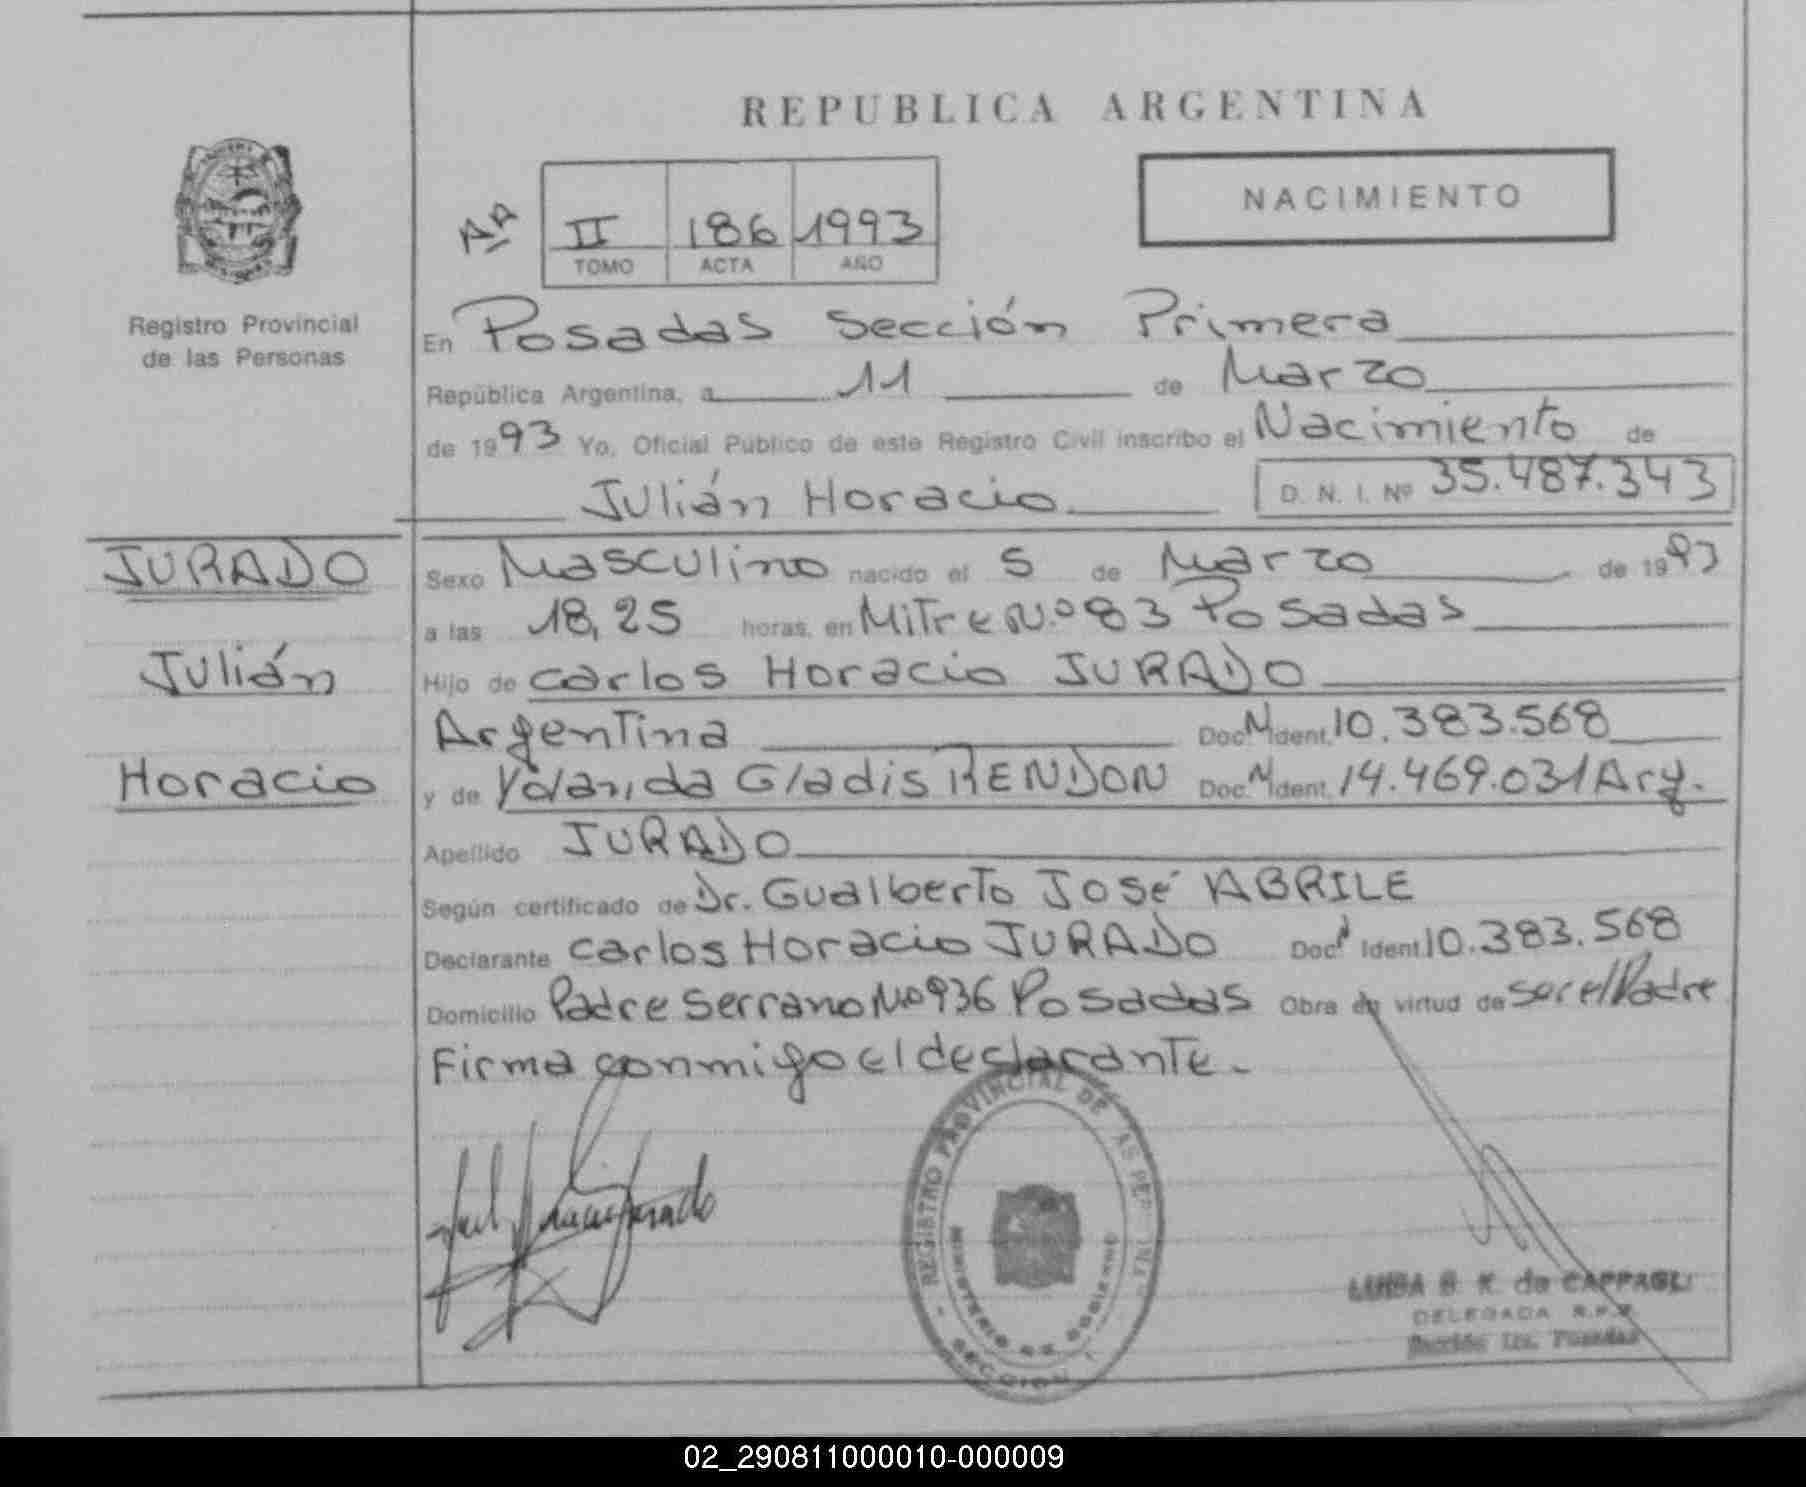 REPUBLICA ARGENTINA
NACIMIENTO
AA
II 186 1993
TOMO ACTA AÑO
Registro Provincial
de las Personas
En Posadas Sección Primera
República Argentina, a 11 de Marzo
de 1993 Yo, Oficial Público de este Registro Civil inscribo el Nacimiento de
Julián Horacio D. N. I. Nº 35.487.343
JURADO
Julián
Horacio
Sexo Masculino nacido el 5 de Marzo de 1993
a las 18,25 horas, en Mitre N.º 83 Posadas
Hijo de Carlos Horacio JURADO
Argentina Doc. N Ident. 10.383.568
y de Yolanda Gladis RENDON Doc. N Ident. 14.469.031 Arg.
Apellido JURADO
Según certificado de Dr. Gualberto José ABRILE
Declarante Carlos Horacio JURADO Doc. N Ident. 10.383.568
Domicilio Padre Serrano Nº 936 Posadas Obra en virtud de ser el Padre
Firma conmigo el declarante.-
REGISTRO PROVINCIAL DE LAS PERSONAS
MINISTERIO DE GOBIERNO
SECCION 1
LUISA B. K. de CAPPAGLI
DELEGADA R.P.P.
Sección 1ra. Posadas
02_290811000010-000009